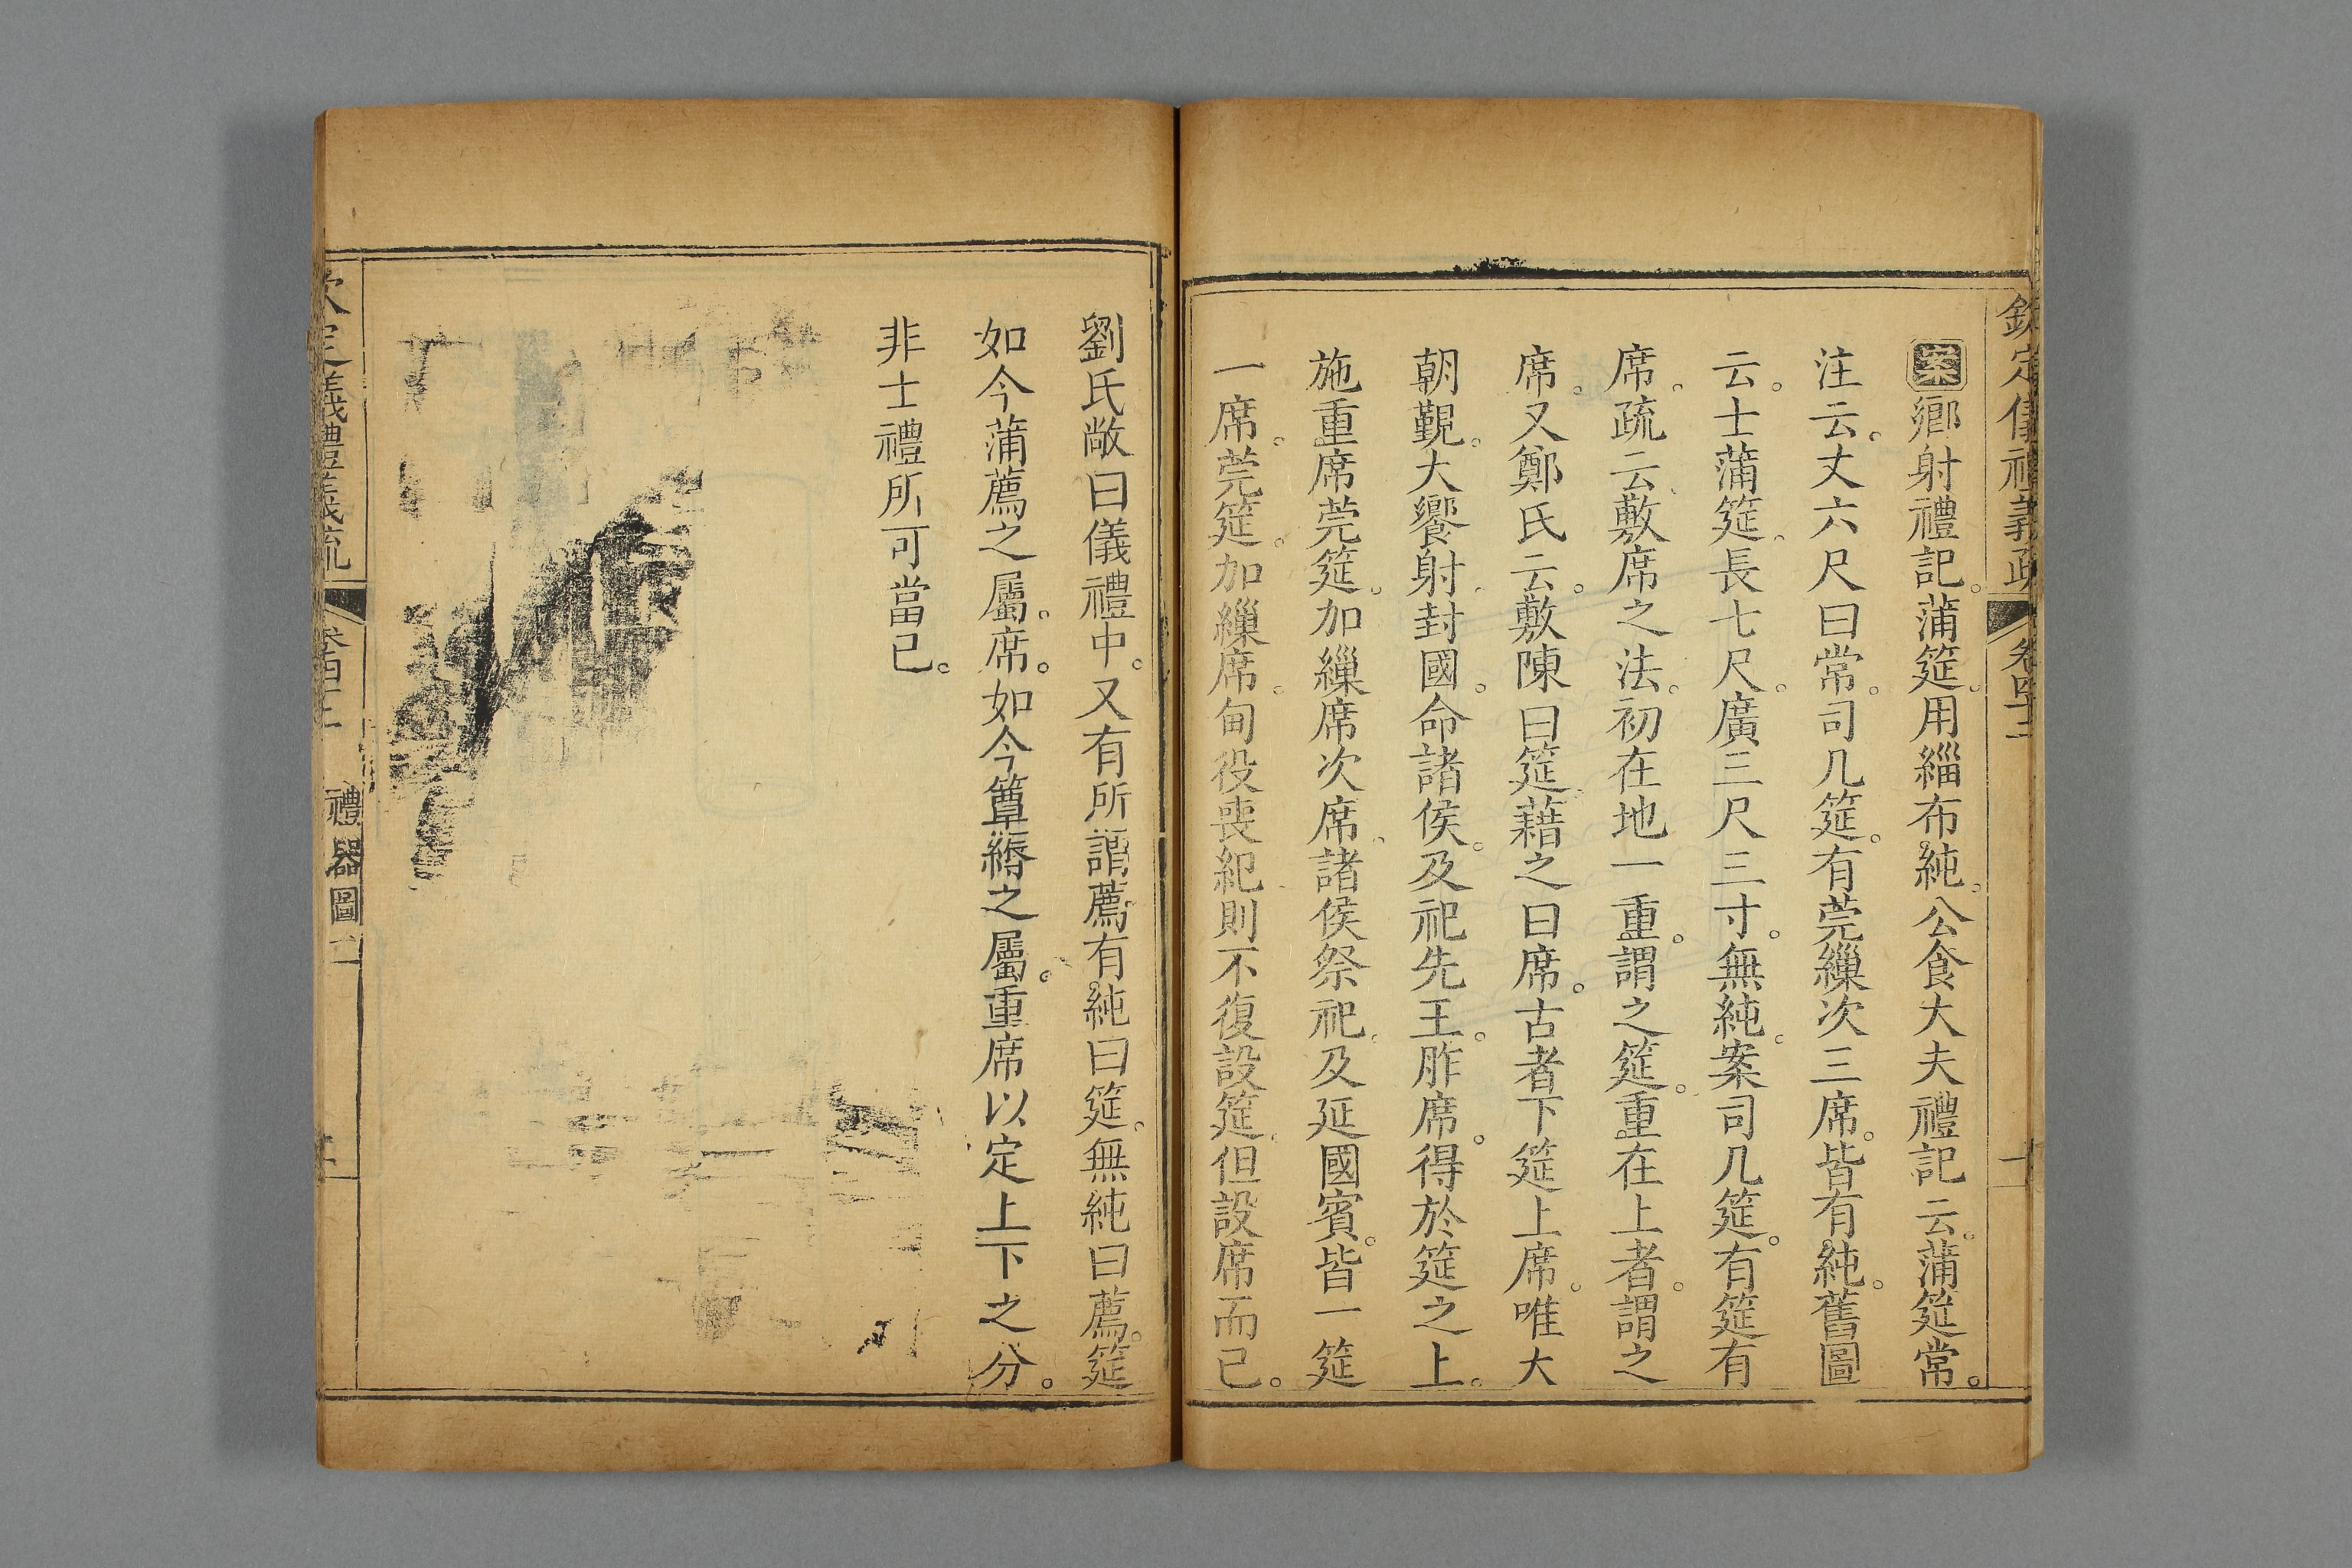 欽定儀禮義疏 卷四十二
案鄉射禮記。蒲筵。用緇布純。公食大夫禮記云。蒲筵常。
注云。丈六尺曰常。司几筵。有莞繅次三席。皆有純。舊圖
云。士蒲筵。長七尺。廣三尺三寸。無純。案司几筵。有筵有
席。疏云。敷席之法。初在地一重。謂之筵。重在上者。謂之
席。又鄭氏云。敷陳曰筵。藉之曰席。古者下筵上席。唯大
朝覲。大饗射。封國。命諸侯。及祀先王。胙席。得於筵之上。
施重席。莞筵。加繅席次席。諸侯祭祀。及延國賓。皆一筵
一席。莞筵。加繅席。甸役喪紀。則不復設筵。但設席而已。
劉氏敞曰儀禮中。又有所謂薦。有純曰筵。無純曰薦。筵
如今蒲薦之屬。席。如今簟縟之屬。重席以定上下之分。
非士禮所可當已。
欽定儀禮義疏 卷四十二 禮器圖二